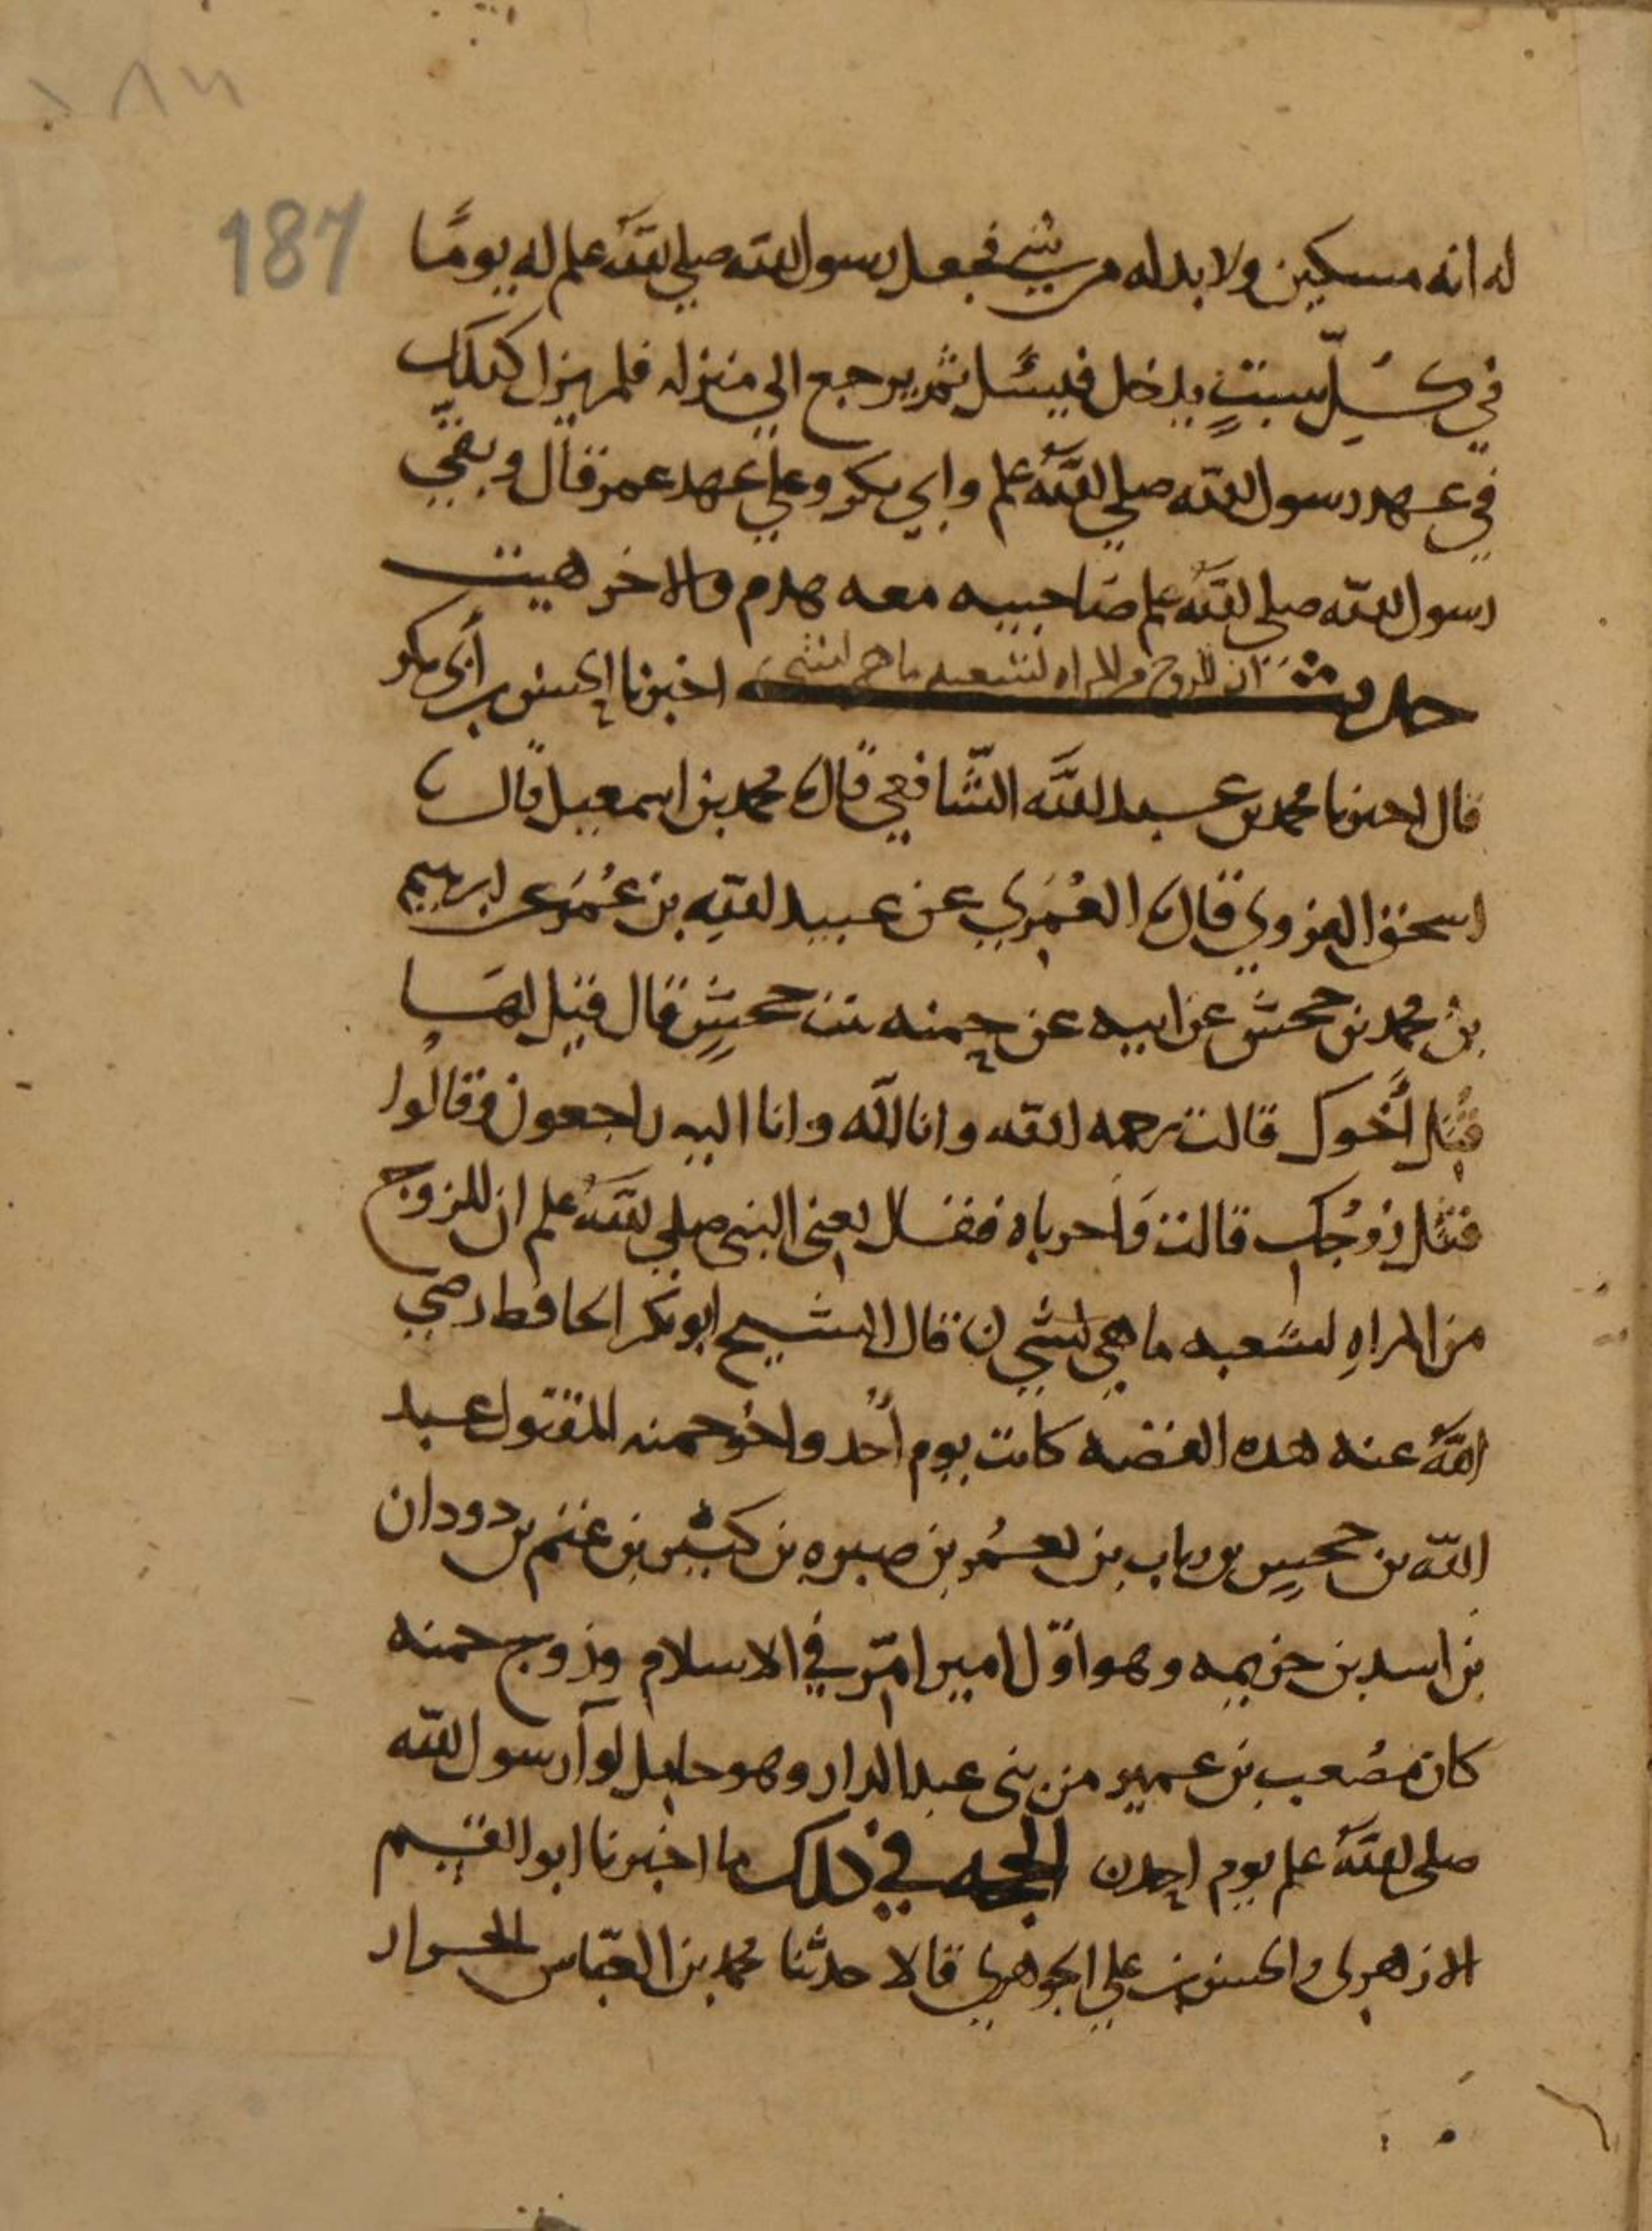 187
له انه مسكين ولا بد له من شي فجعل رسول الله صلى الله علم له يومًا
في كلّ سبتٍ يدخل فيسئل ثم يرجع الى منزله فلم يزل كذلك
في عهد رسول الله صلي الله علم وابي بكر وعلي عهد عمر قال ونفى
رسول الله صلى الله علم صاحبيه معه هدم والاخر هيت
حديث ان للزوج من المراه لشعبه ما هي لشي اخبرنا الحسن بن أبي بكر
قال اخبرنا محمد بن عبد الله الشافعي قال نا محمد بن اسمعيل قال نا
اسحق الفروي قال نا العُمَري عن عبيد الله بن عُمَر عن ابرهيم
بن محمد بن جحش عن ابيه عن حمنه بنت جحشٍ قال قيل لها
قُتل أخوك قالت رحمه الله وانا لله وانا اليه راجعون وقالُوا
قتل زوجك قالت وَاحرباه فقال يعني النبي صلي الله علم ان للزوج
من المراهِ لشعبه ما هي لشي ن قال الشيخ ابو بكر الحافظ رضي
اللهُ عنه هذه القصه كانت يوم أُحُد واخو حمنه المقتول عبد
الله بن جحشٍ بن رياب بن يعمُر بن صبره بن كبير بن غنم بن دودان
بن اسد بن خزيمه وهو اوّل امير امّر في الاسلام وزوج حمنه
كان مصُعب بن عمير من بني عبد الدار وهو حامل لوآ رسول الله
صلى اللهُ علم يوم احد ن الحجه في ذلك ما اخبرنا ابو القسم
الازهري والحسن بن علي الجوهري قالا حدثنا محمد بن العبّاس الخزاز